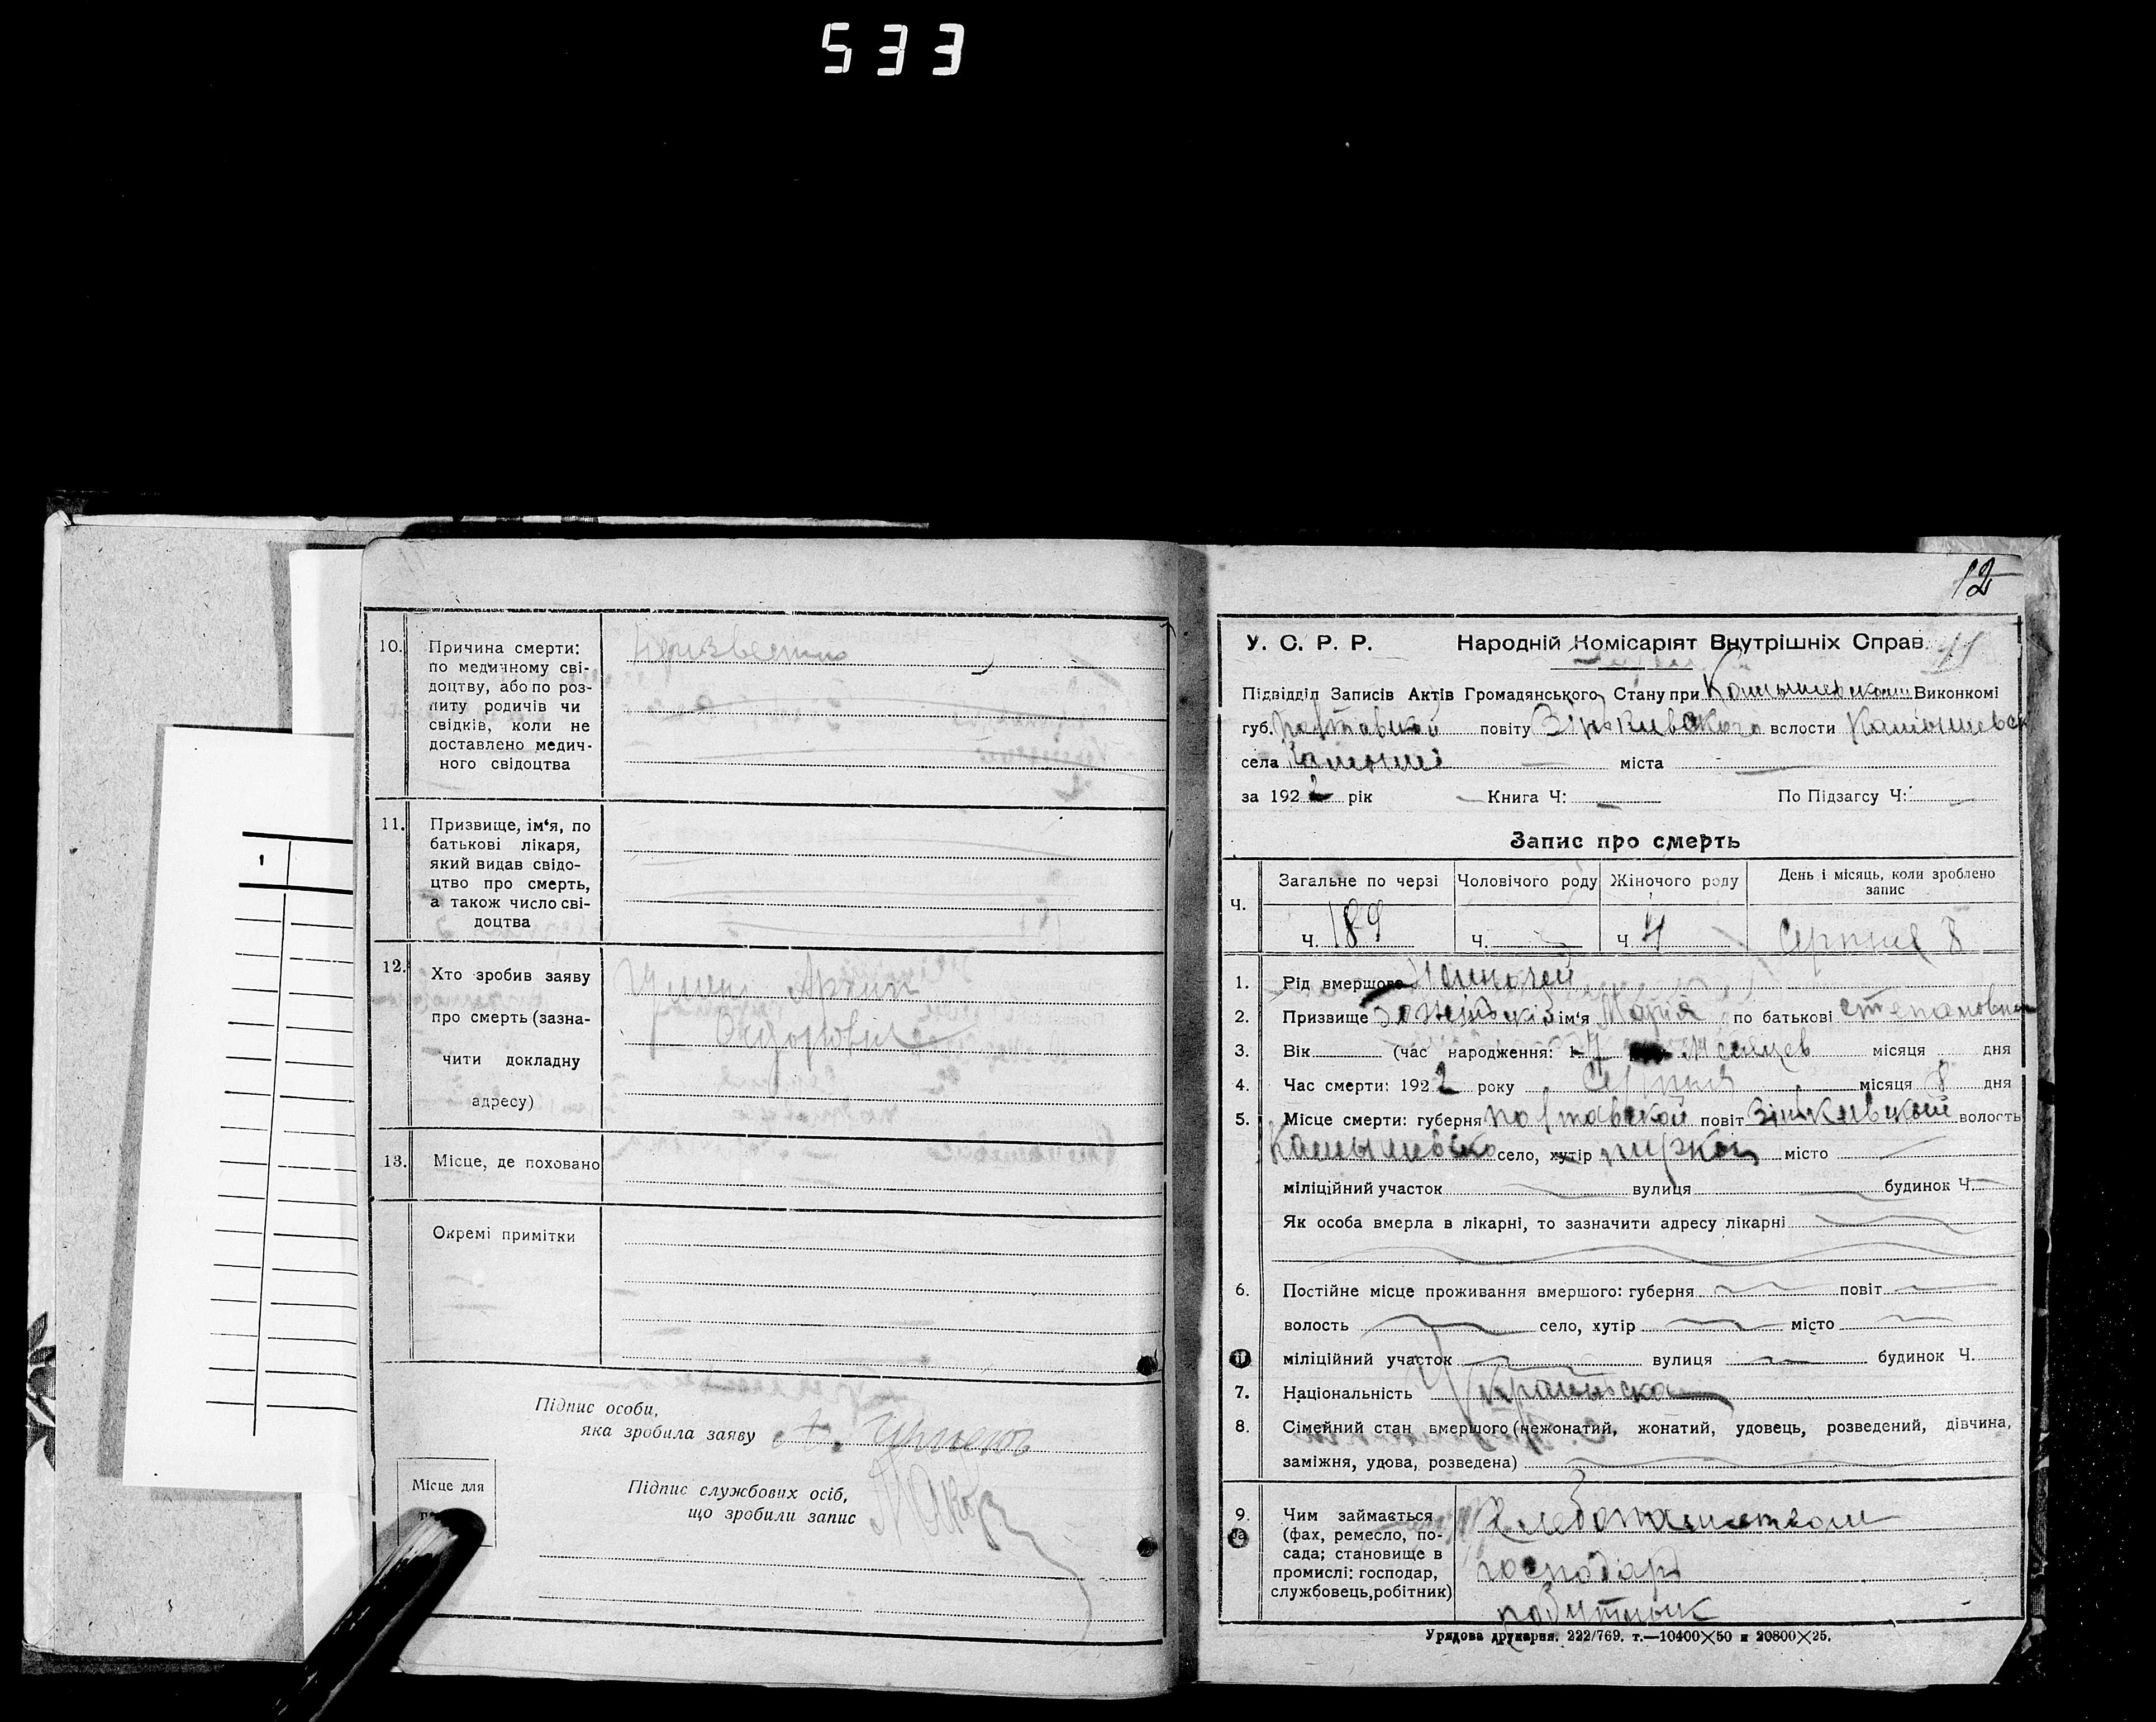 533
10. Причина смерти:
по медичному сві-
доцтву, або по роз-
питу родичів чи
свідків, коли не
доставлено медич-
ного свідоцтва
Неизвестно
11. Призвище, ім'я, по
батькові лікаря,
який видав свідо-
цтво про смерть,
а також число сві-
доцтва
12. Хто зробив заяву
про смерть (зазна-
чити докладну
адресу)
13. Місце, де поховано
Окремі примітки
Підпис особи,
яка зробила заяву
Підпис службових осіб,
що зробили запис
Місце для
12
У. С. Р. Р. Народній Комісаріят Внутрішніх Справ. 11
Підвідділ Записів Актів Громадянського Стану при Виконкомі
губ. Полтавской повіту Зіньківского волости
села Камыши міста
за 1922 рік Книга Ч: По Підзагсу Ч:
Запис про смерть
Ч. Загальне по черзі Чоловічого роду Жіночого роду День і місяць, коли зроблено
запис
Ч. 189 Ч. Ч. Серпня 8
1. Рід вмершого
2. Призвище ім'я Марія по батькові Степановна
3. Вік (час народження: місяця дня
4. Час смерти: 1922 року Серпня місяця 8 дня
5. Місце смерти: губерня Полтавской повіт Зіньківской волость
село, хутір місто
міліційний участок вулиця будинок Ч.
Як особа вмерла в лікарні, то зазначити адресу лікарні
6. Постійне місце проживання вмершого: губерня повіт
волость село, хутір місто
міліційний участок вулиця будинок Ч.
7. Національність Українська
8. Сімейний стан вмершого (нежонатий, жонатий, удовець, розведений, дівчина,
заміжня, удова, розведена)
9. Чим займається
(фах, ремесло, по-
сада; становище в
промислі: господар,
службовець, робітник)
Хлебопашеством
господарь
Урядова друкарня. 222/769. т.—10400×50 и 20800×25.